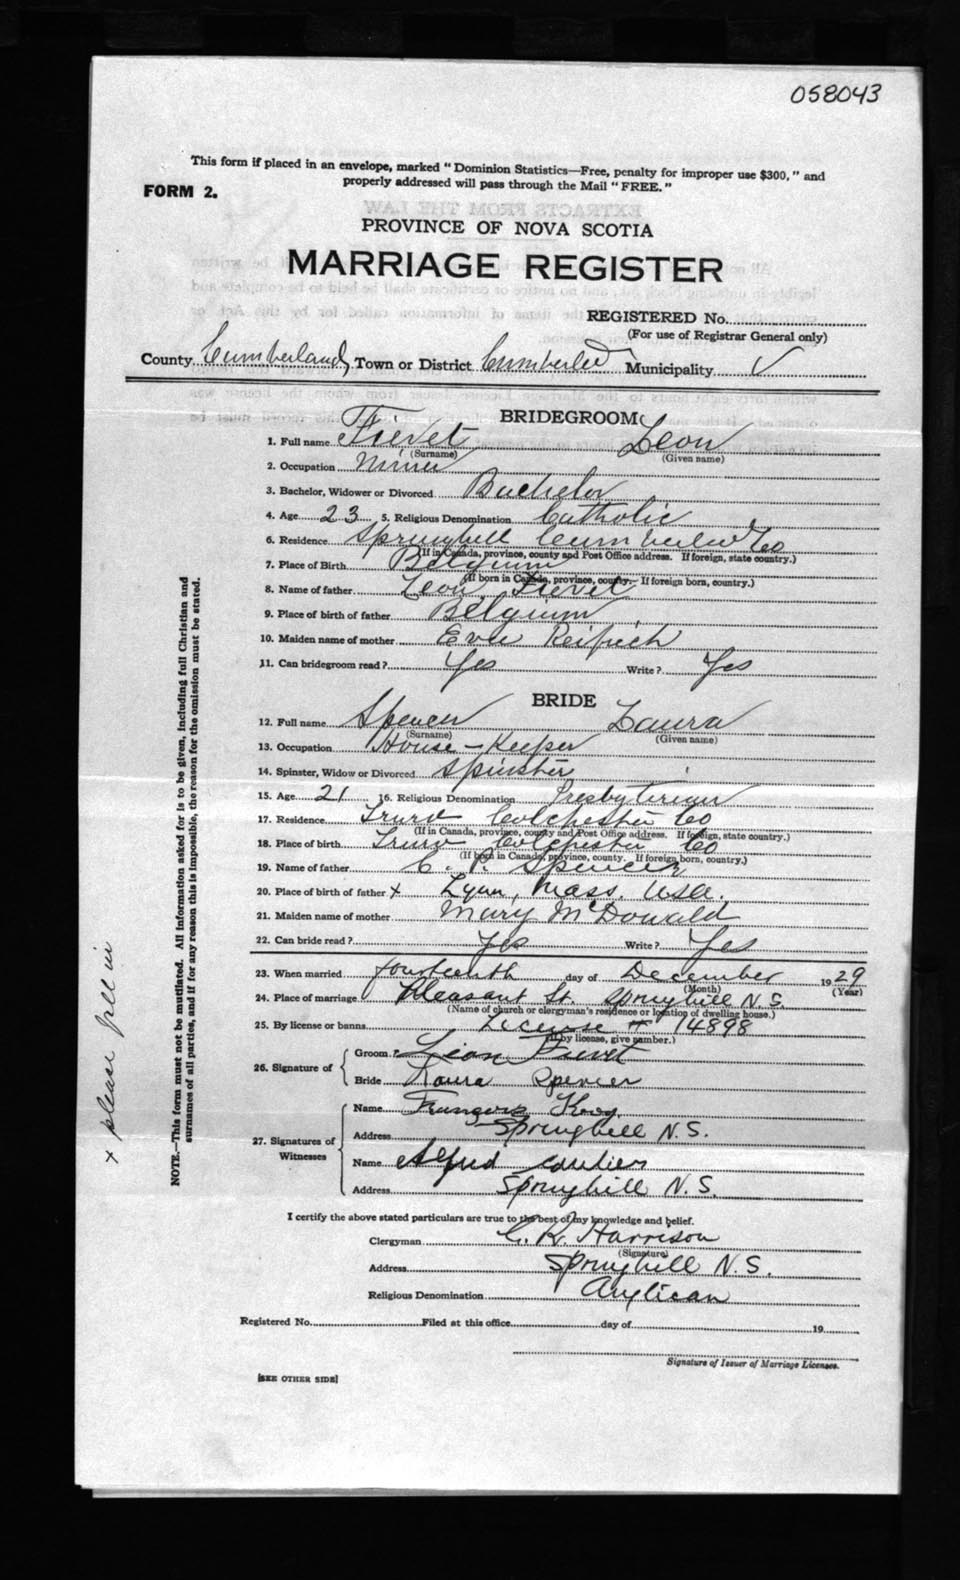 058043
This form if placed in an envelope, marked "Dominion Statistics—Free, penalty for improper use $300," and
FORM 2. properly addressed will pass through the Mail "FREE."
PROVINCE OF NOVA SCOTIA
MARRIAGE REGISTER
REGISTERED No.
(For use of Registrar General only)
County Cumberland, Town or District Cumberled Municipality ✓
BRIDEGROOM
1. Full name Fievet Leon
(Surname) (Given name)
2. Occupation Miner
3. Bachelor, Widower or Divorced Bachelor
4. Age 23 5. Religious Denomination Catholic
6. Residence Springhill Cumberled Co
(If in Canada, province, county and Post Office address. If foreign, state country.)
7. Place of Birth Belgium
(If born in Canada, province, county. If foreign born, country.)
8. Name of father Leon Fievet
9. Place of birth of father Belgium
10. Maiden name of mother Eva
11. Can bridegroom read? Yes Write? Yes
BRIDE
12. Full name Spencer Laura
(Surname) (Given name)
13. Occupation House-Keeper
14. Spinster, Widow or Divorced Spinster
15. Age 21 16. Religious Denomination Presbyterian
17. Residence Truro Colchester Co
(If in Canada, province, county and Post Office address. If foreign, state country.)
18. Place of birth Truro Colchester Co
(If born in Canada, province, county. If foreign born, country.)
19. Name of father C. P. Spencer
20. Place of birth of father x Lynn, Mass. USA.
21. Maiden name of mother Mary McDonald
22. Can bride read? Yes Write? Yes
23. When married fourteenth day of December 1929
(Month) (Year)
24. Place of marriage Pleasant St. Springhill N.S.
(Name of church or clergyman's residence or location of dwelling house.)
25. By license or banns License # 14898
(If by license, give number.)
26. Signature of Groom Léon Fievet
Bride Laura Spencer
27. Signatures of Witnesses
Name François
Address Springhill N.S.
Name Alfred
Address Springhill N.S.
I certify the above stated particulars are true to the best of my knowledge and belief.
Clergyman C. R. Harrison
(Signature)
Address Springhill N.S.
Religious Denomination Anglican
Registered No. Filed at this office day of 19
Signature of Issuer of Marriage Licenses.
[SEE OTHER SIDE]
NOTE.—This form must not be mutilated. All information asked for is to be given, including full Christian and
surnames of all parties, and if for any reason this is impossible, the reason for the omission must be stated.
x please fill in